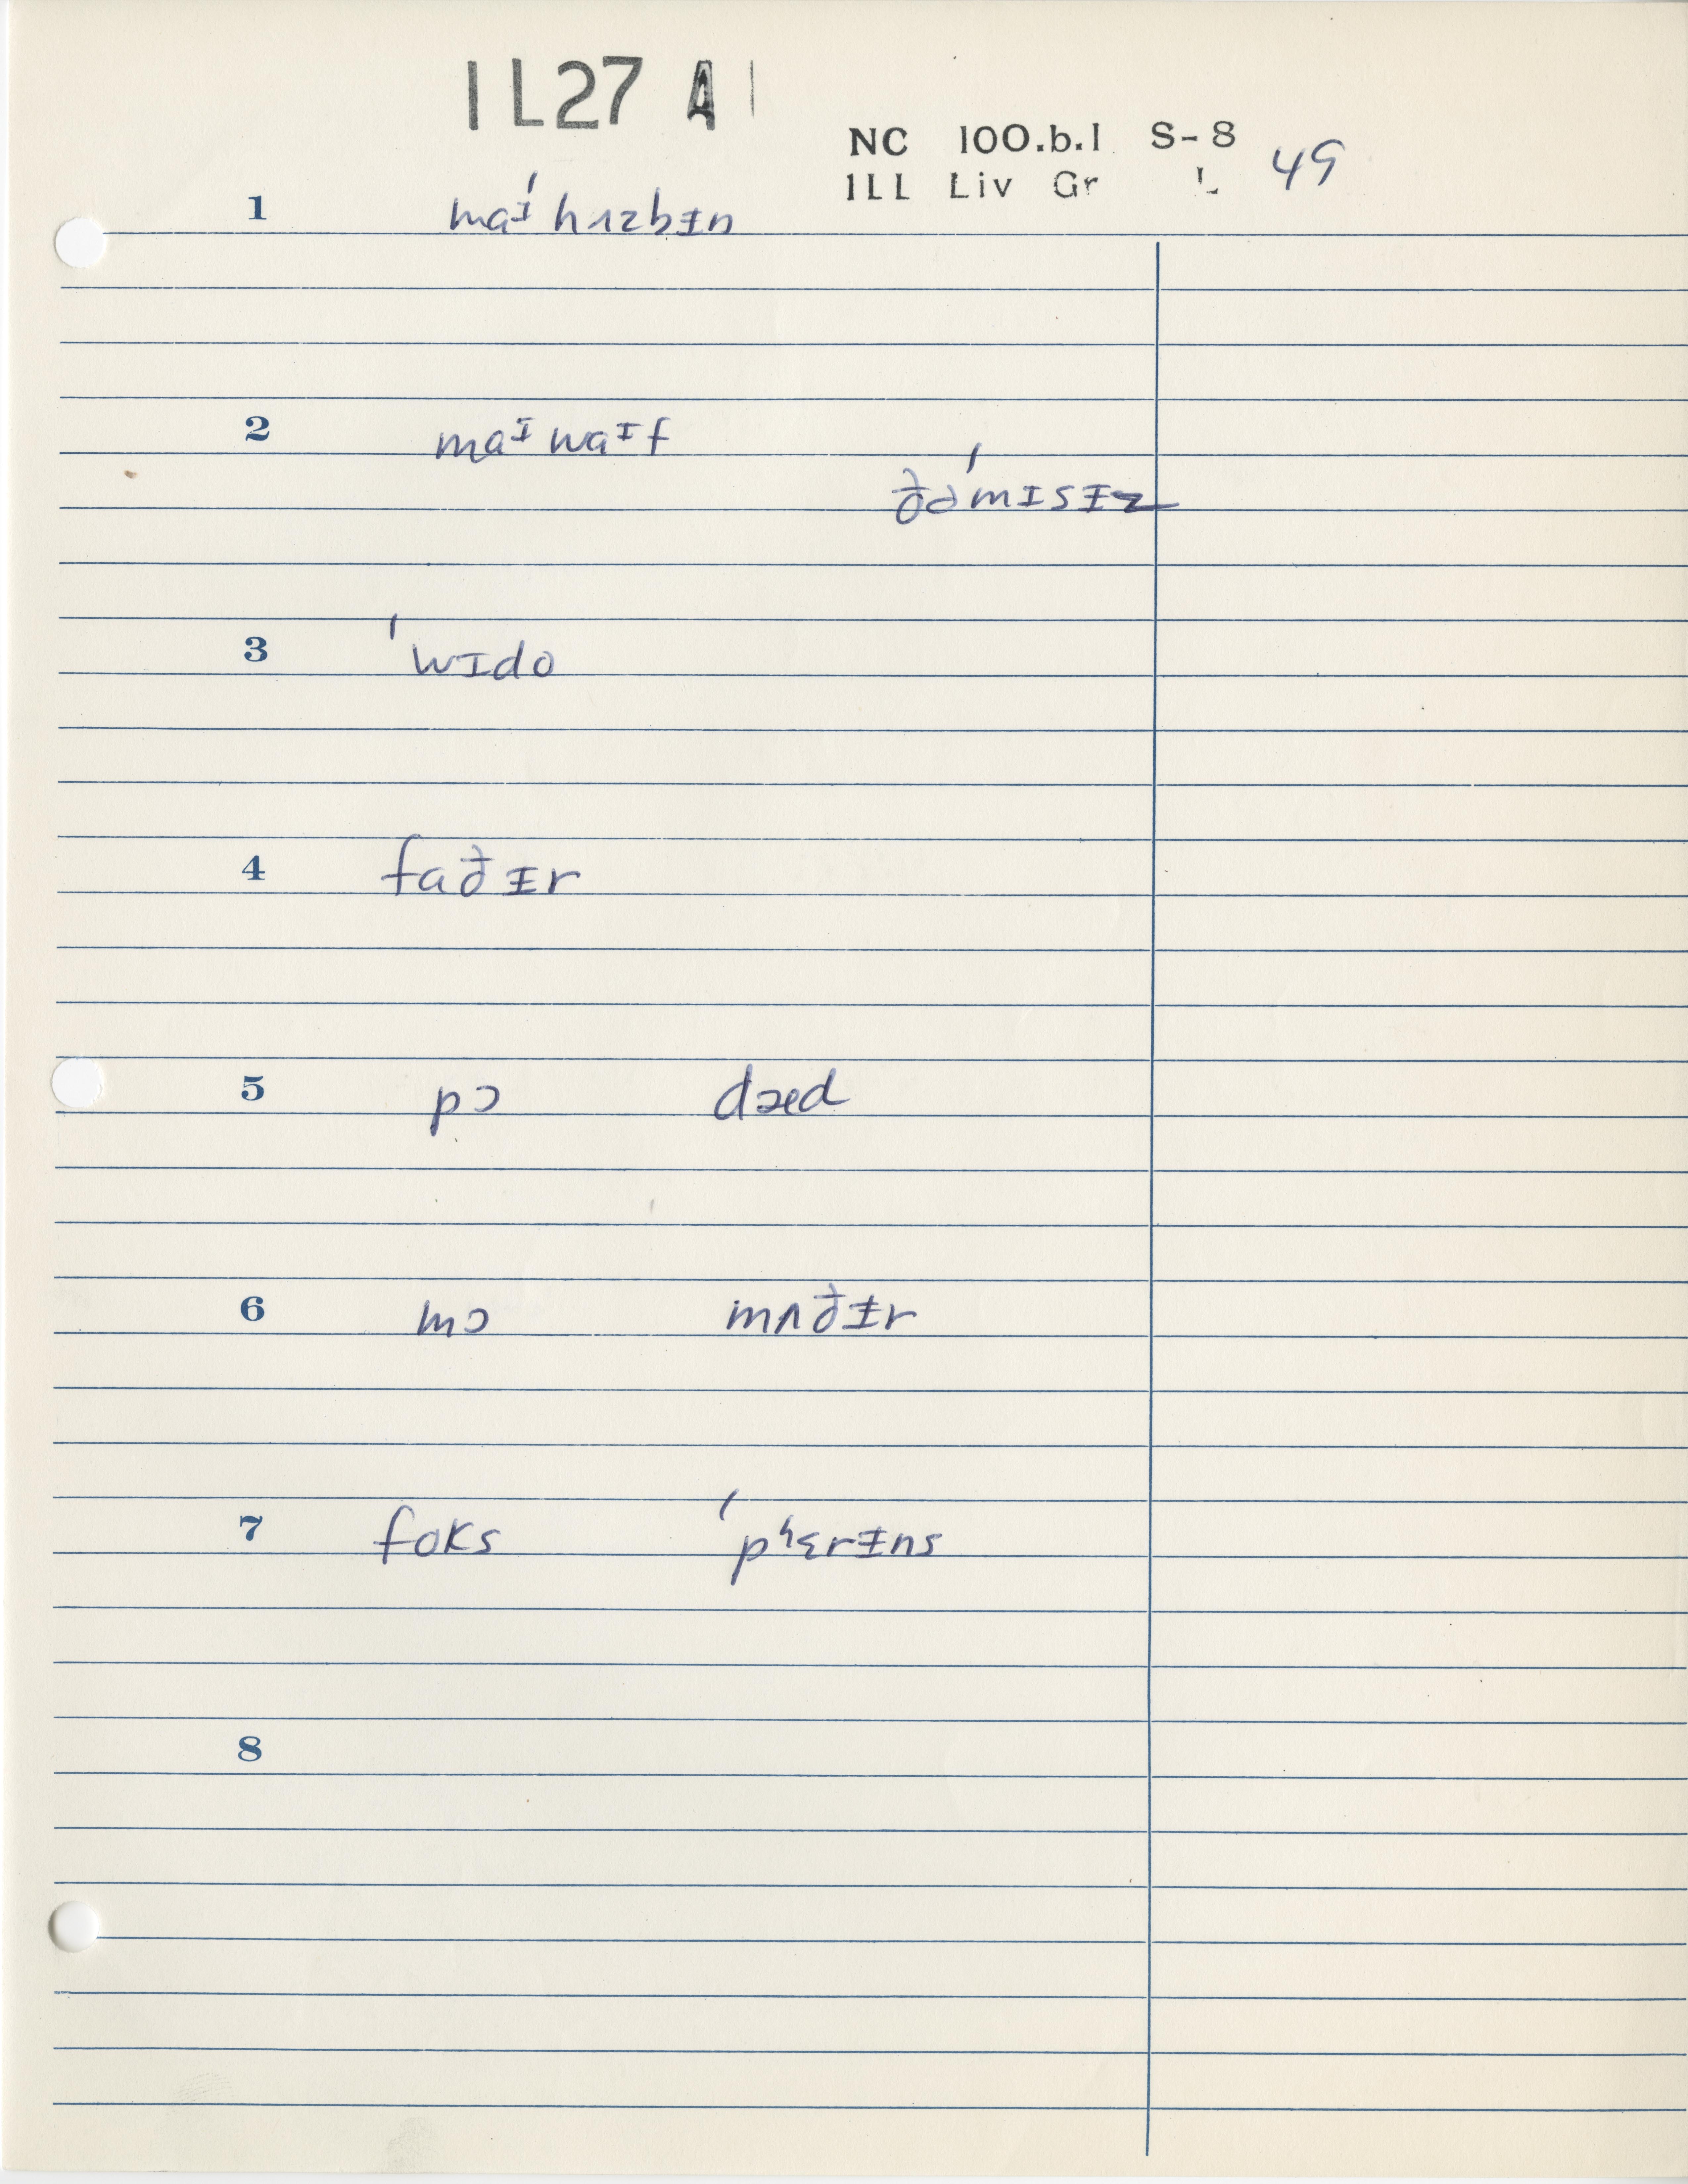 1L27 A
NC 100.b.1 S-8 49
ILL Liv Gr L
1 maᶦ ˈhʌzbɨn
2 maᶦ waᶦf
ðəˈmɪsɨz
3 ˈwɪdo
4 faðɨr
5 pɔ dæd
6 mɔ mʌðɨr
7 foks ˈpʰɛrɨns
8